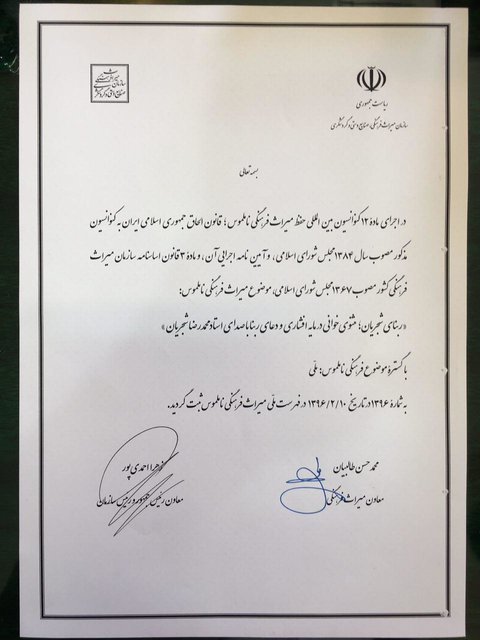 میراث فرهنگی
سازمان
صنایع دستی و گردشگری
ریاست جمهوری
سازمان میراث فرهنگی، صنایع دستی و گردشگری
بسمه تعالی
در اجرای مادهٔ ۱۲ کنوانسیون بین المللی حفظ میراث فرهنگی ناملموس؛ قانون الحاق جمهوری اسلامی ایران به کنوانسیون
مذکور مصوب سال ۱۳۸۴ مجلس شورای اسلامی، و آیین نامه اجرایی آن، و مادهٔ ۳ قانون اساسنامه سازمان میراث
فرهنگی کشور مصوب ۱۳۶۷ مجلس شورای اسلامی، موضوع میراث فرهنگی ناملموس:
«ربنای شجریان؛ مثنوی خوانی در مایه افشاری و دعای ربنا با صدای استاد محمدرضا شجریان»
با گسترهٔ موضوع فرهنگی ناملموس: ملّی
به شمارهٔ ۱۳۹۶ در تاریخ ۱۳۹۶/۲/۱۰ در فهرست ملّی میراث فرهنگی ناملموس ثبت گردید.
محمد حسن طالبیان
معاون میراث فرهنگی
زهرا احمدی پور
معاون رئیس جمهور و رئیس سازمان